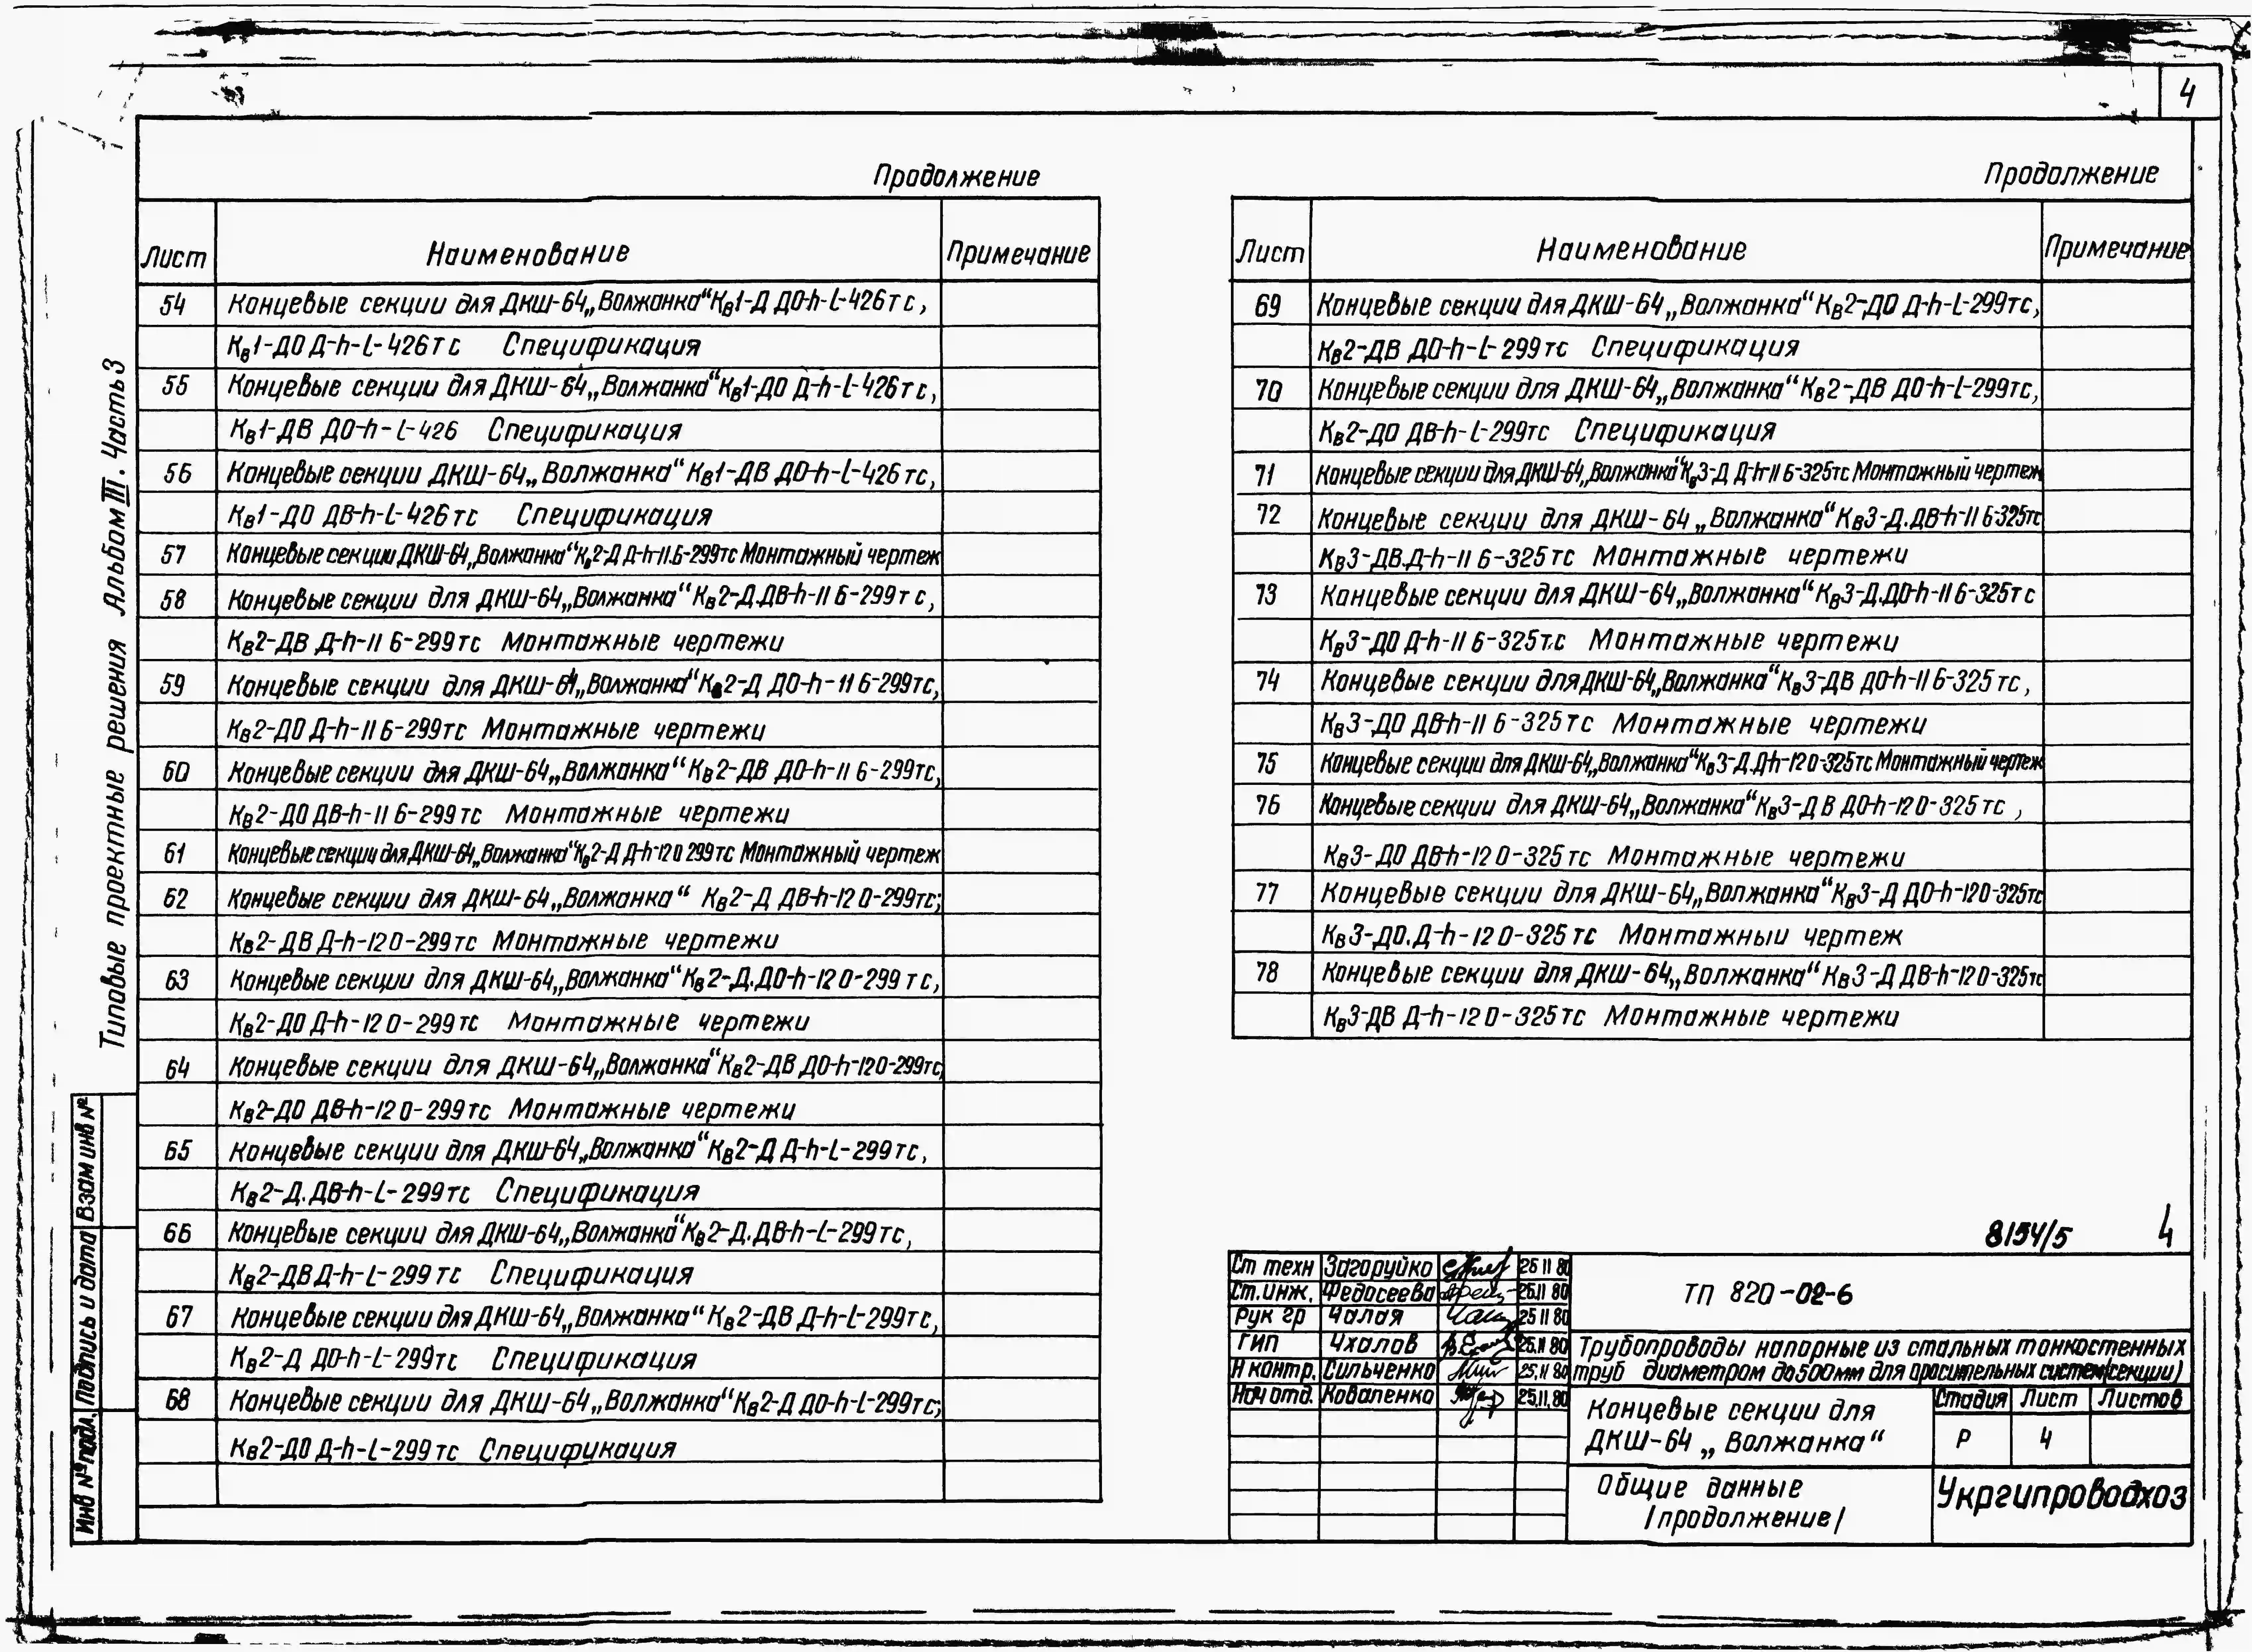 4
Продолжение
Лист Наименование Примечание
54 Концевые секции для ДКШ-64 „Волжанка“ Кв1-Д ДО-h-L-426тс,
Кв1-ДО Д-h-L-426тс Спецификация
55 Концевые секции для ДКШ-64 „Волжанка“ Кв1-ДО Д-h-L-426тс,
Кв1-ДВ ДО-h-L-426 Спецификация
56 Концевые секции ДКШ-64 „Волжанка“ Кв1-ДВ ДО-h-L-426тс,
Кв1-ДО ДВ-h-L-426тс Спецификация
57 Концевые секции ДКШ-64 „Волжанка“ Кв2-Д Д-h-11.6-299тс Монтажный чертеж
58 Концевые секции для ДКШ-64 „Волжанка“ Кв2-Д.ДВ-h-11 6-299тс,
Кв2-ДВ Д-h-11 6-299тс Монтажные чертежи
59 Концевые секции для ДКШ-64 „Волжанка“ Кв2-Д ДО-h-11 6-299тс,
Кв2-ДО Д-h-11 6-299тс Монтажные чертежи
60 Концевые секции для ДКШ-64 „Волжанка“ Кв2-ДВ ДО-h-11 6-299тс,
Кв2-ДО ДВ-h-11 6-299тс Монтажные чертежи
61 Концевые секции для ДКШ-64 „Волжанка“ Кв2-Д Д-h-12 0 299тс Монтажный чертеж
62 Концевые секции для ДКШ-64 „Волжанка“ Кв2-Д ДВ-h-12 0-299тс;
Кв2-ДВ Д-h-12 0-299тс Монтажные чертежи
63 Концевые секции для ДКШ-64 „Волжанка“ Кв2-Д.ДО-h-12 0-299тс,
Кв2-ДО Д-h-12 0-299тс Монтажные чертежи
64 Концевые секции для ДКШ-64 „Волжанка“ Кв2-ДВ ДО-h-12 0-299тс,
Кв2-ДО ДВ-h-12 0-299тс Монтажные чертежи
65 Концевые секции для ДКШ-64 „Волжанка“ Кв2-Д Д-h-L-299тс,
Кв2-Д.ДВ-h-L-299тс Спецификация
66 Концевые секции для ДКШ-64 „Волжанка“ Кв2-Д.ДВ-h-L-299тс,
Кв2-ДВ Д-h-L-299тс Спецификация
67 Концевые секции для ДКШ-64 „Волжанка“ Кв2-ДВ Д-h-L-299тс,
Кв2-Д ДО-h-L-299тс Спецификация
68 Концевые секции для ДКШ-64 „Волжанка“ Кв2-Д ДО-h-L-299тс;
Кв2-ДО Д-h-L-299тс Спецификация
Продолжение
Лист Наименование Примечание
69 Концевые секции для ДКШ-64 „Волжанка“ Кв2-ДО Д-h-L-299тс,
Кв2-ДВ ДО-h-L-299тс Спецификация
70 Концевые секции для ДКШ-64 „Волжанка“ Кв2-ДВ ДО-h-L-299тс,
Кв2-ДО ДВ-h-L-299тс Спецификация
71 Концевые секции для ДКШ-64 „Волжанка“ Кв3-Д Д-h-11 6-325тс Монтажный чертеж
72 Концевые секции для ДКШ-64 „Волжанка“ Кв3-Д.ДВ-h-11 6-325тс
Кв3-ДВ.Д-h-11 6-325тс Монтажные чертежи
73 Концевые секции для ДКШ-64 „Волжанка“ Кв3-Д.ДО-h-11 6-325тс
Кв3-ДО Д-h-11 6-325т.с Монтажные чертежи
74 Концевые секции для ДКШ-64 „Волжанка“ Кв3-ДВ ДО-h-11 6-325тс,
Кв3-ДО ДВ-h-11 6-325тс Монтажные чертежи
75 Концевые секции для ДКШ-64 „Волжанка“ Кв3-Д.Д-h-12 0-325тс Монтажный чертеж
76 Концевые секции для ДКШ-64 „Волжанка“ Кв3-ДВ ДО-h-12 0-325тс,
Кв3-ДО ДВ-h-12 0-325тс Монтажные чертежи
77 Концевые секции для ДКШ-64 „Волжанка“ Кв3-Д ДО-h-12 0-325тс
Кв3-ДО.Д-h-12 0-325тс Монтажный чертеж
78 Концевые секции для ДКШ-64 „Волжанка“ Кв3-Д ДВ-h-12 0-325тс
Кв3-ДВ Д-h-12 0-325тс Монтажные чертежи
Типовые проектные решения Альбом III. Часть 3
Взам инв №
Подпись и дата
Инв № подл.
8154/5 4
Ст техн Загоруйко 25 11 80
Ст. инж. Федосеева 25.11 80
Рук гр Чалая 25 11 80
ГИП Чхалов 25.11 80
Н контр. Сильченко 25.11 80
Нач отд. Коваленко 25.11.80
ТП 820-02-6
Трубопроводы напорные из стальных тонкостенных
труб диаметром до 500мм для оросительных систем (секции)
Концевые секции для
ДКШ-64 „Волжанка“
Стадия Лист Листов
Р 4
Общие данные
/продолжение/
Укргипроводхоз